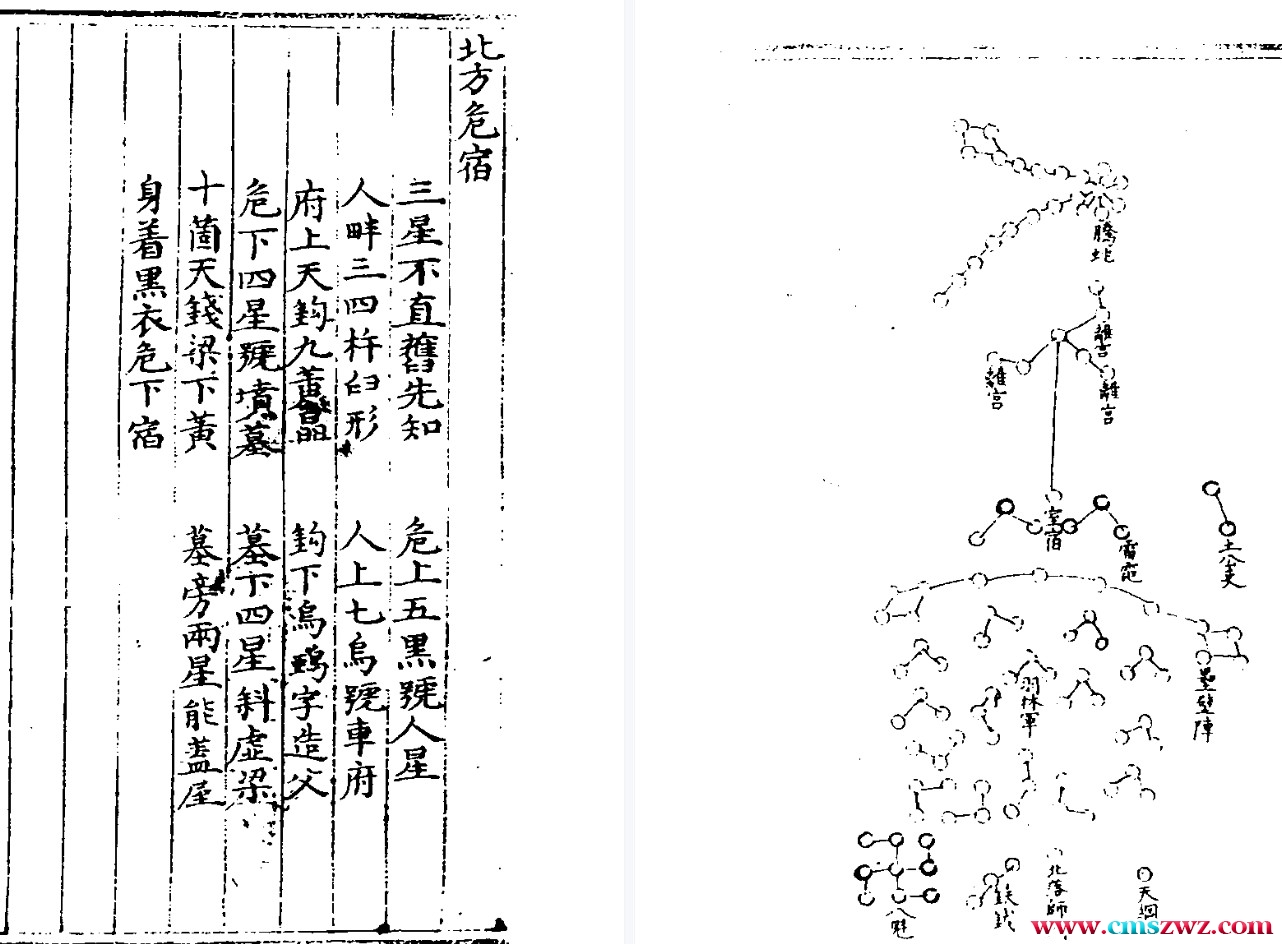 北方危宿
三星不直舊先知 危上五黑號人星
人畔三四杵臼形 人上七烏號車府
府上天鈎九黃晶 鈎下烏鵶字造父
危下四星號墳墓 墓下四星斜虛梁
十箇天錢梁下黃 墓旁兩星能蓋屋
身着黑衣危下宿
騰虵
離宮
離宮
離宮
室宿
雷電
土公吏
壘壁陣
羽林軍
八魁
鈇鉞
北落師
天綱
www.cmszwz.com